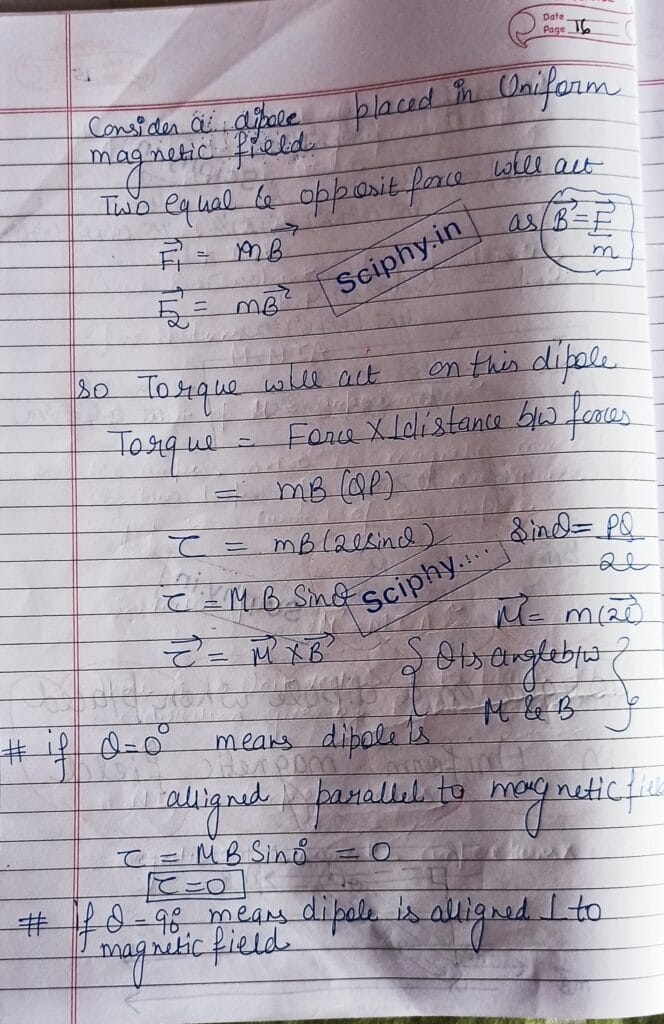 Date
Page 16
Consider a dipole placed in Uniform
magnetic field.
Two equal & opposit force will act
F₁ = mB as B = F/m
Sciphy.in
F₂ = mB
so Torque will act on this dipole
Torque = Force X ⊥distance b/w forces
= mB (QP)
τ = mB(2lsinθ) Sinθ = PQ/2l
τ = M B Sinθ Sciphy....
M = m(2l)
τ = M X B { θ is angle b/w
M & B }
# if θ=0° means dipole is
alligned parallel to magnetic field
τ = MB Sin0° = 0
τ=0
# If θ=90° means dipole is alligned ⊥ to
magnetic field